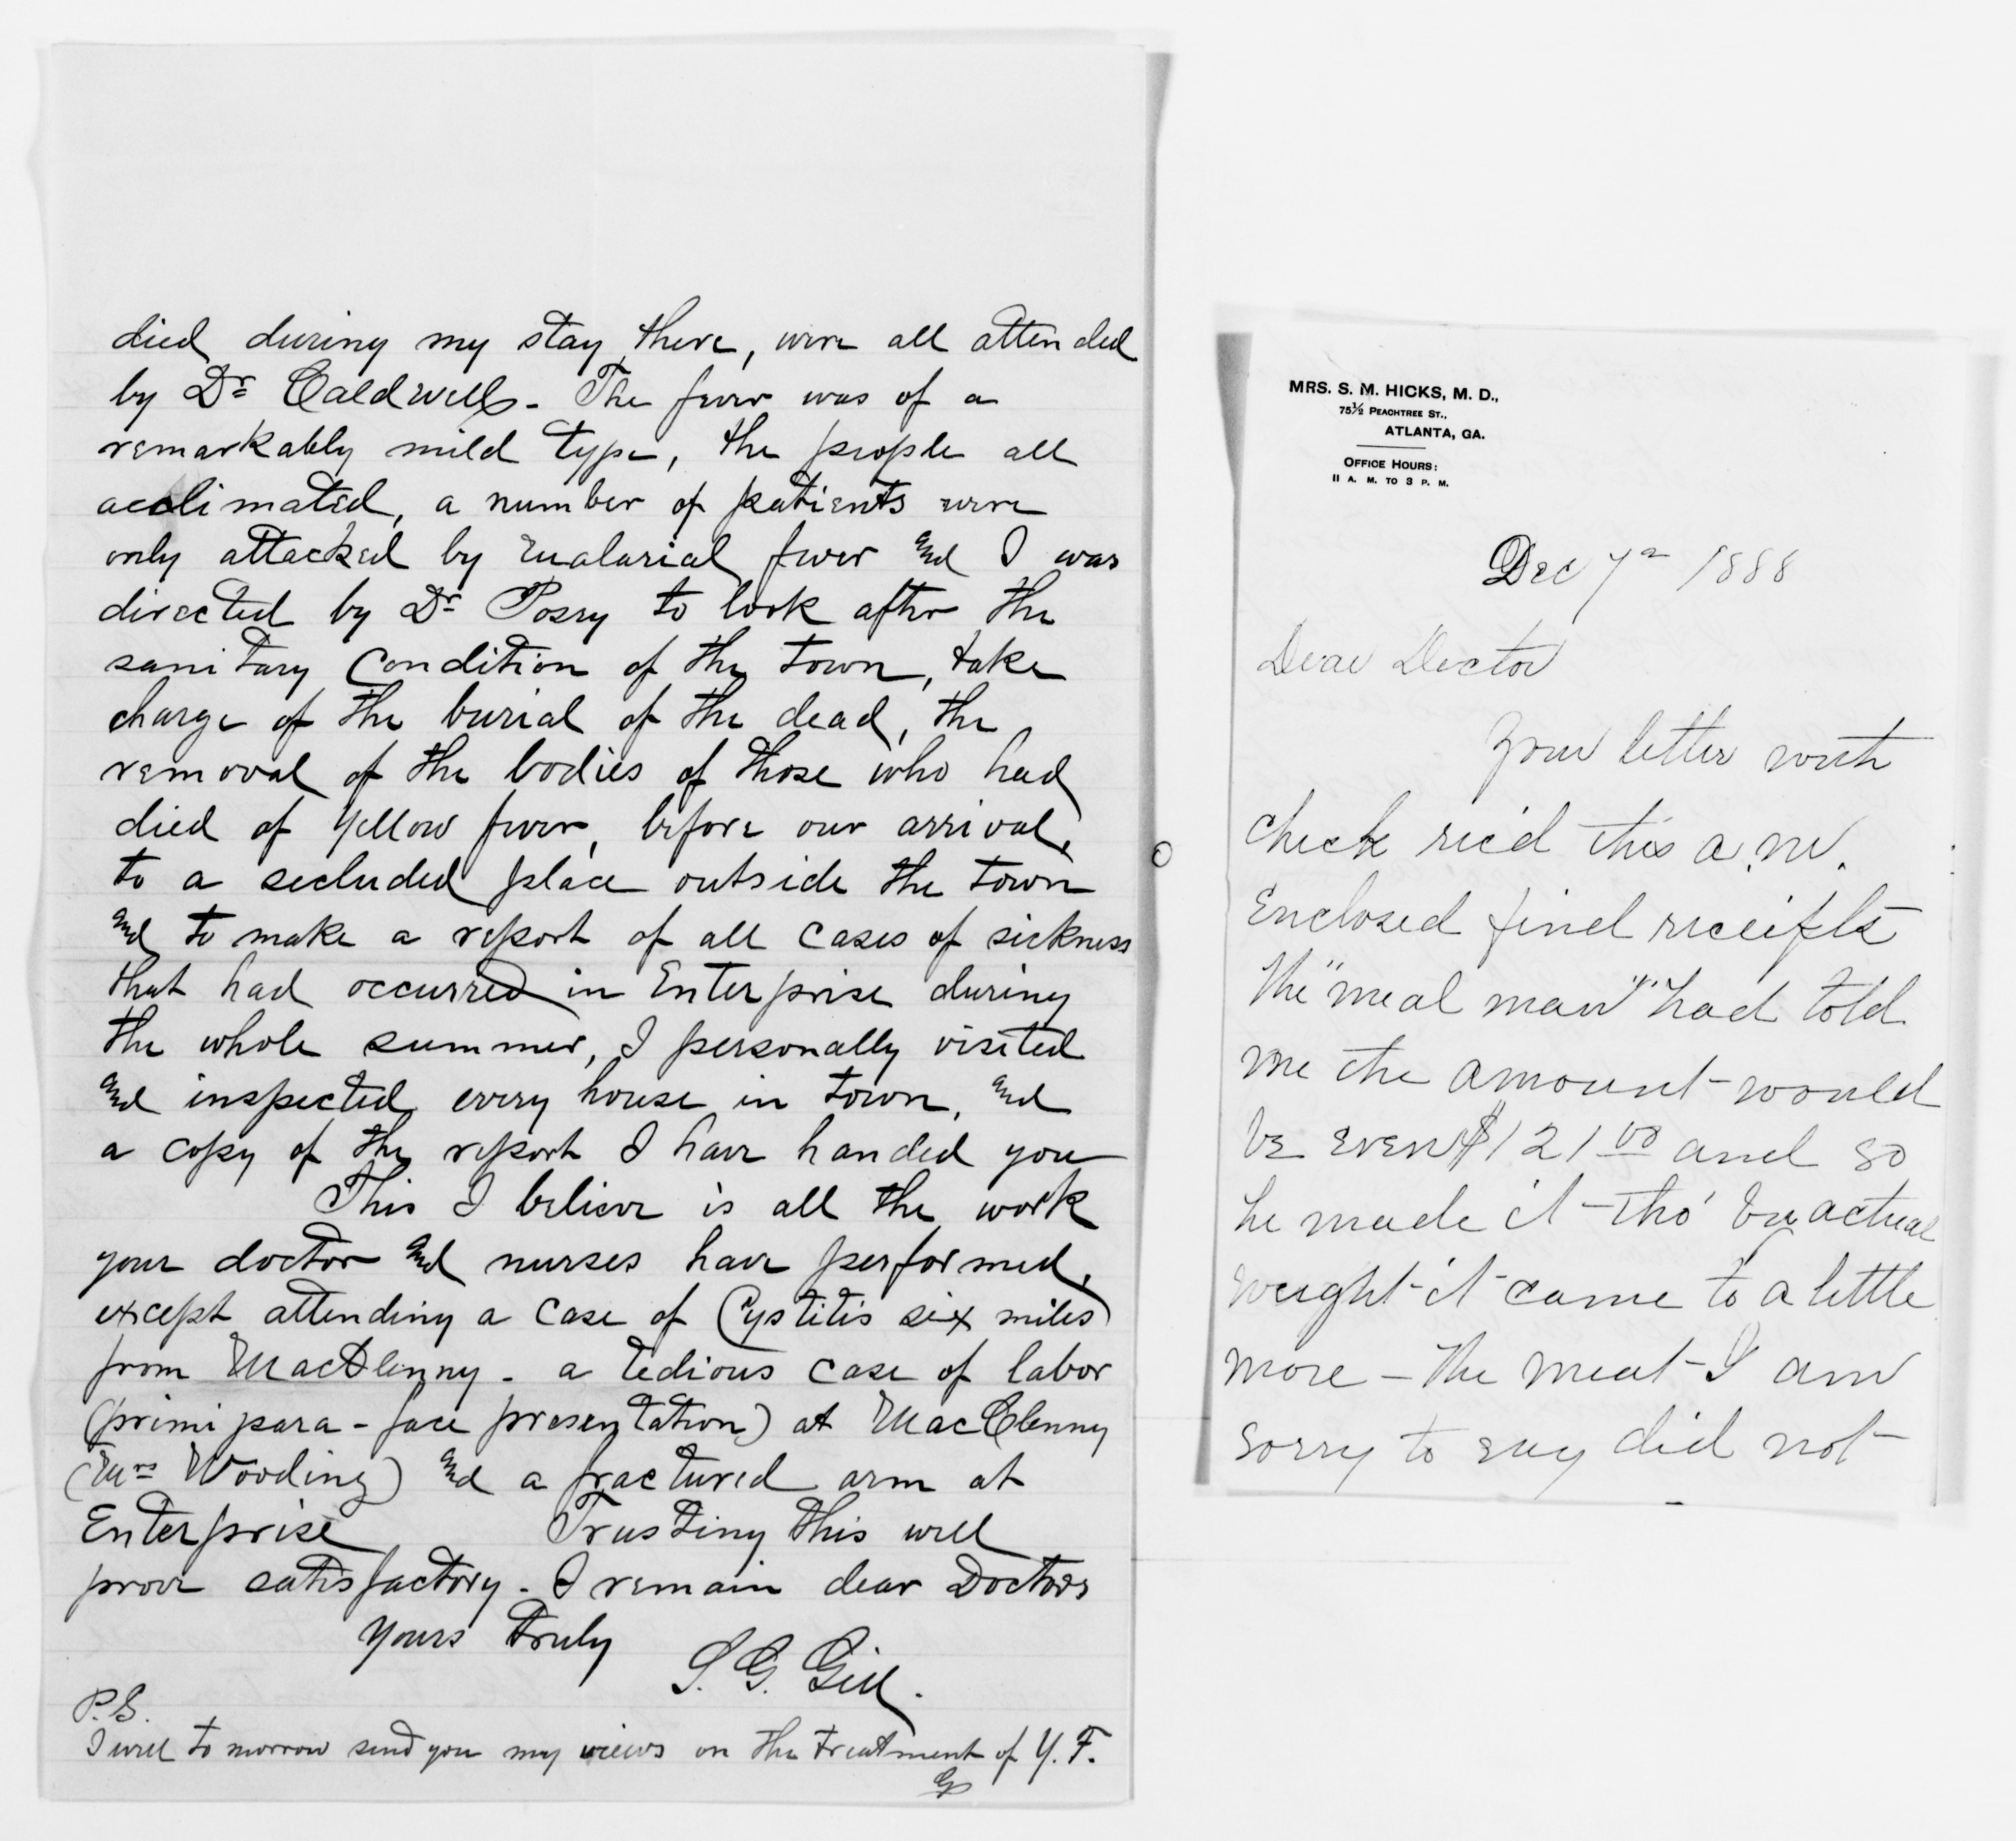 died during my stay there, were all attended
by Dr Caldwell. The fever was of a
remarkably mild type, the people all
acclimated, a number of patients were
only attacked by malarial fever and I was
directed by Dr Posey to look after the
sanitary condition of the town, take
charge of the burial of the dead, the
removal of the bodies of those who had
died of yellow fever, before our arrival,
to a secluded place outside the town
and to make a report of all cases of sickness
that had occurred in Enterprise during
the whole summer, I personally visited
and inspected every house in town, and
a copy of the report I have handed you
This I believe is all the work
your doctor and nurses have performed,
except attending a case of Cystitis six miles
from MacClenny - a tedious case of labor
(primipara - face presentation) at MacClenny
(Mrs Wooding) and a fractured arm at
Enterprise Trusting this will
prove satisfactory - I remain dear Doctors
Yours truly
S. G. Gill.
P.S.
I will to morrow send you my views on the treatment of Y. F.
G
MRS. S. M. HICKS, M. D.,
75½ PEACHTREE ST.,
ATLANTA, GA.
OFFICE HOURS:
11 A. M. TO 3 P. M.
Dec 7th 1888
Dear Doctor
Your letter with
check rec'd this a.m.
Enclosed find receipts
The "meal man" had told
me the amount would
be even $121 00 and so
he made it - tho' by actual
weight it came to a little
more - The meat I am
sorry to say did not